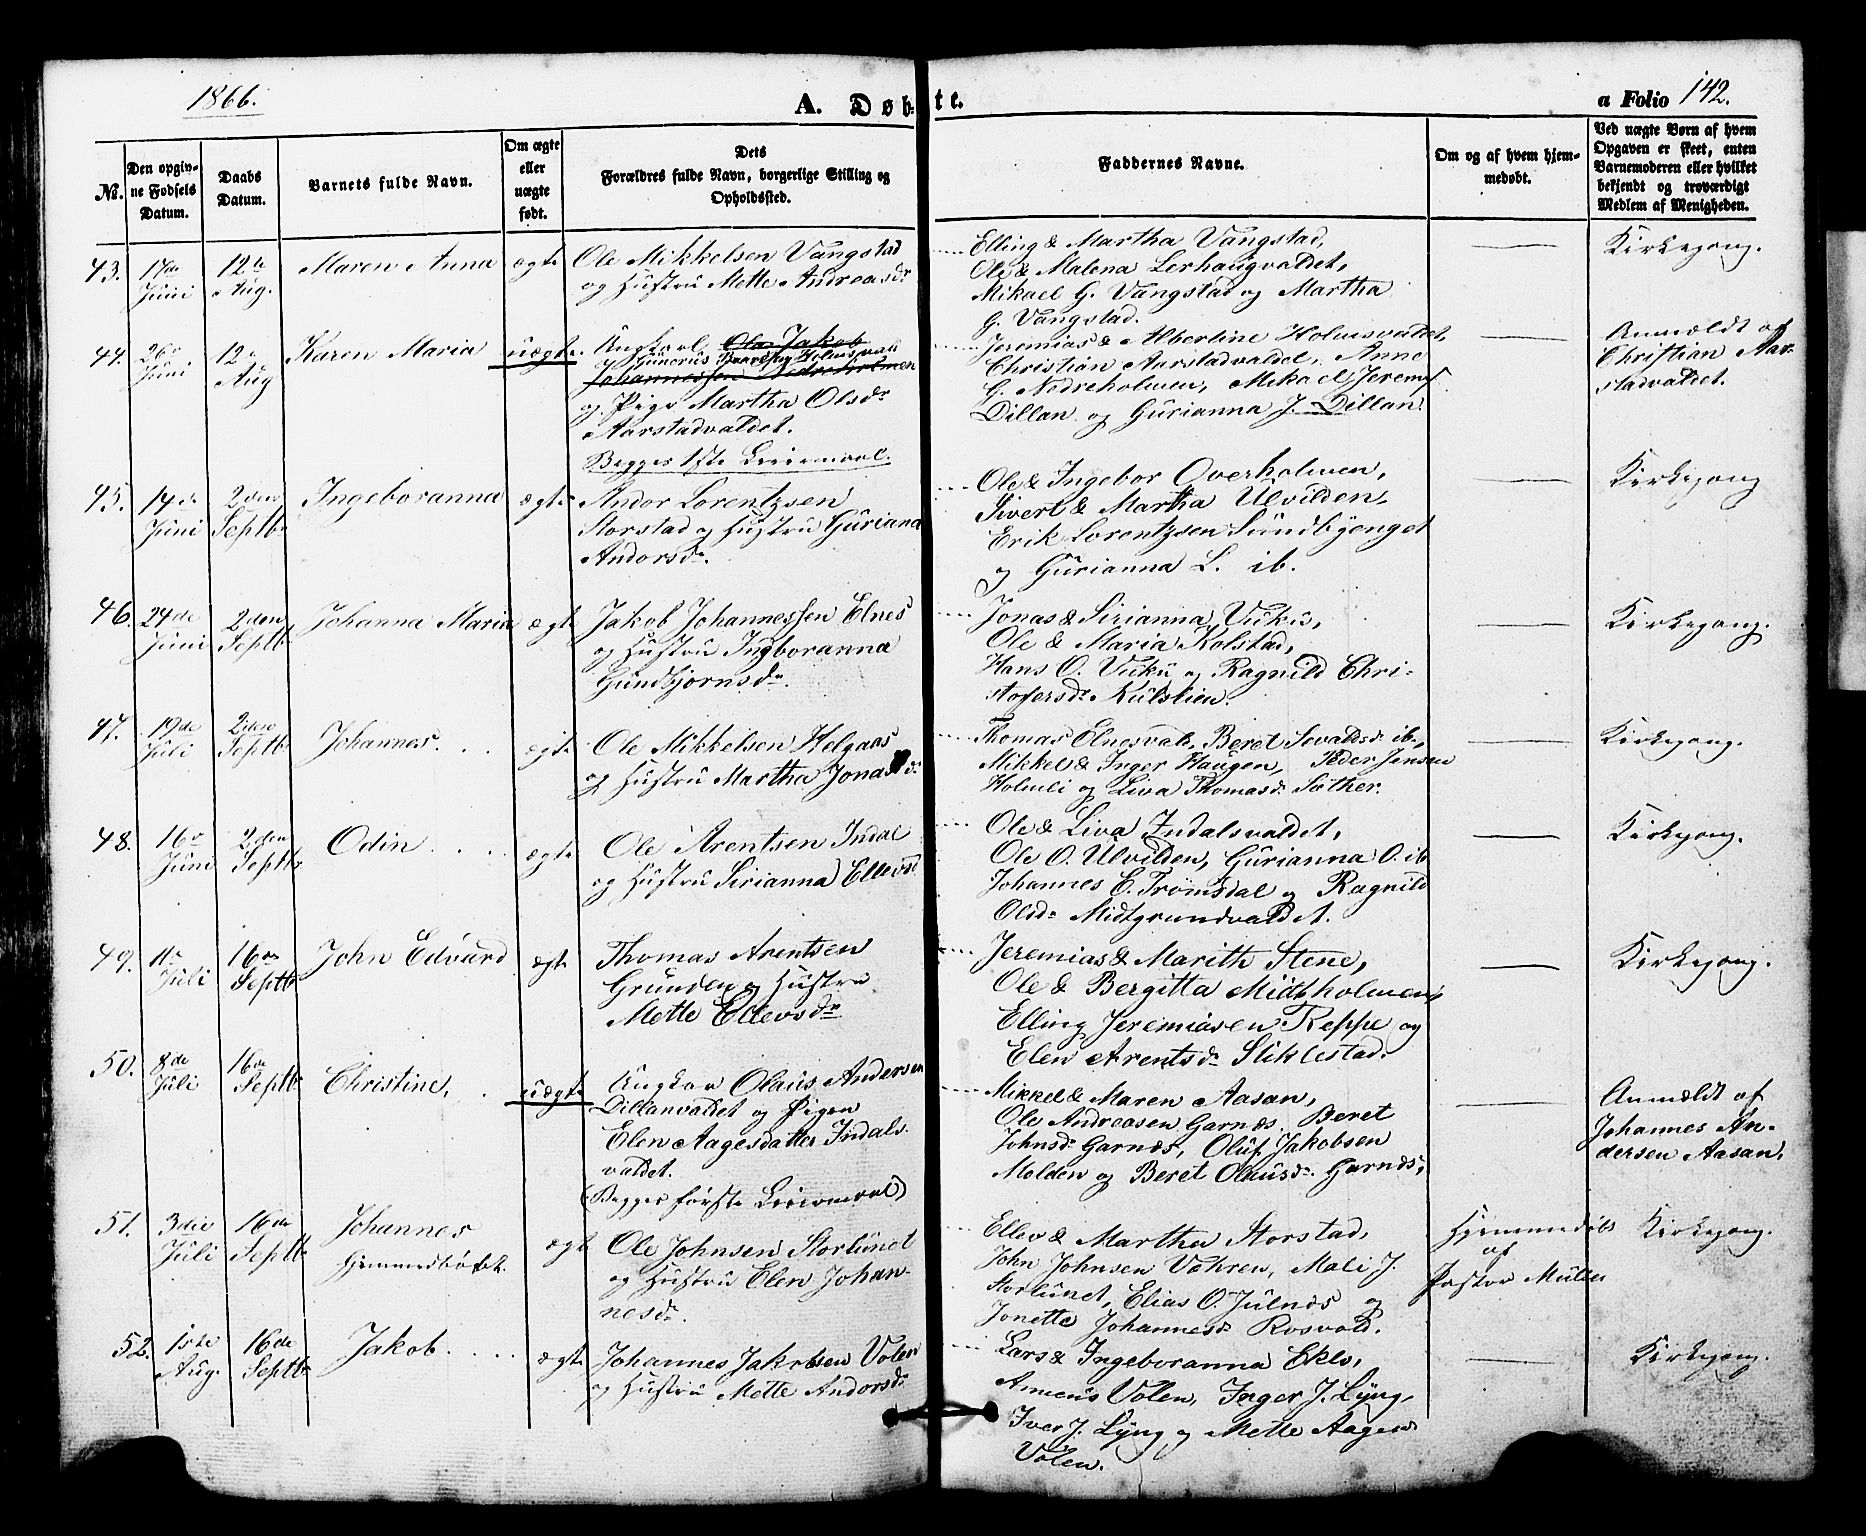 1866.
A. Døb-
te.
a Folio 142.
No.
Den opgiv-
ne Fødsels
Datum.
Daabs
Datum.
Barnets fulde Navn.
Om ægte
eller
uægte
født.
Dets
Forældres fulde Navn, borgerlige Stilling og
Opholdssted.
Faddernes Navne.
Om og af hvem hjem-
medøbt.
Ved uægte Børn af hvem
Opgaven er skeet, enten
Barnemoderen eller hvilket
bekjendt og troværdigt
Medlem af Menigheden.
43.
17de
Juni
12te
Aug.
Maren Anna
ægte
Ole Mikkelsen Vangstad
og Hustru Mette Andreasdr
Elling & Martha Vangstad,
Ole & Malena Lerhaugvaldet,
Mikael G. Vangstad og Martha
G. Vangstad.
Kirkegang.
44.
26de
Juni
12te
Aug
Karen Maria
uægte.
Ungkarl Ole Jakob
Johannessen Nedreholmen
og Pige Martha Olsdr
Aarstadvaldet.
Begges 1ste Leiermaal.
Jeremias & Albertine Holmsvaldet,
Christian Aarstadvaldet, Anne
G. Nedreholmen, Mikael Jerems
Dillan og Gurianna J. Dillan.
Anmeldt af
Christian Aar-
stadvaldet.
45.
14de
Juni
2den
Septbr
Ingeboranna
ægte
Andor Lorentzsen
Storstad og Hustru Guriana
Andorsdr.
Ole & Ingebor Overholmen,
Sivert & Martha Ulvilden,
Erik Lorentzsen Sundbyenget
og Gurianna L. ib.
Kirkegang
46.
24de
Juni
2den
Septbr
Johanna Maria
ægte
Jakob Johannessen Elnes
og Hustru Ingboranna
Gundbjornsdr.
Jonas & Sirianna Vuku,
Ole & Maria Kolstad,
Hans O. Vuku og Ragnild Chri-
stofersdr Kulslien.
Kirkegang.
47.
19de
Juli
2den
Septbr
Johannes.
ægte
Ole Mikkelsen Helgaas
og Hustru Martha Jonasdr
Thomas Elnesvald, Beret Sevaldsdr ib.,
Mikkel & Inger Haugen, Peder Jensen
Holmli og Liva Thomasdr Sæther.
Kirkegang.
48.
16de
Juni
2den
Septbr
Odin
ægte
Ole Arentsen Indal
og Hustru Sirianna Ellevsd
Ole & Liva Indalsvaldet,
Ole O. Ulvilden, Gurianna O. ib
Johannes E. Tromsdal og Ragnild
Olsdr Midtgrundvaldet.
Kirkegang.
49.
11te
Juli
16de
Septbr
John Edvard
ægte
Thomas Arentsen
Grunden og Hustru
Mette Ellevsdr
Jeremias & Marith Stene,
Ole & Bergitta Midtholmen,
Elling Jeremiasen Reppe og
Elen Arentsdr Stiklestad.
Kirkegang.
50.
8de
Juli
16de
Septbr
Christine,
uægte
Ungkar Olaus Andersen
Dillanvaldet og Pigen
Elen Aagesdatter Indals-
valdet.
(Begges første Leiermaal)
Mikkel & Maren Aasan,
Ole Andreasen Garnæs, Beret
Johnsdr Garnæs, Oluf Jakobsen
Molden og Beret Olausdr Garnæs,
Anmældt af
Johannes An-
dersen Aasan,
51.
3die
Juli
16de
Septbr
Johannes
hjemmedøbt.
ægte
Ole Johnsen Storlunet
og Hustru Elen Johan-
nesdr.
Ellev & Martha Storstad,
John Johnsen Vohren, Mali J.
Storlunet, Elias O. Julnæs og
Jonette Johannesdr Rosvold.
Hjemmedøbt
af
Pastor Müller
Kirkegang.
52.
1ste
Aug.
16de
Septbr
Jakob.
ægte
Johannes Jakobsen Volen
og Hustru Mette Andorsdr
Lars & Ingeboranna Ekle,
Ameus Volen, Inger J. Lyng,
Iver J. Lyng og Mette Aagesdr
Volen.
Kirkegang.